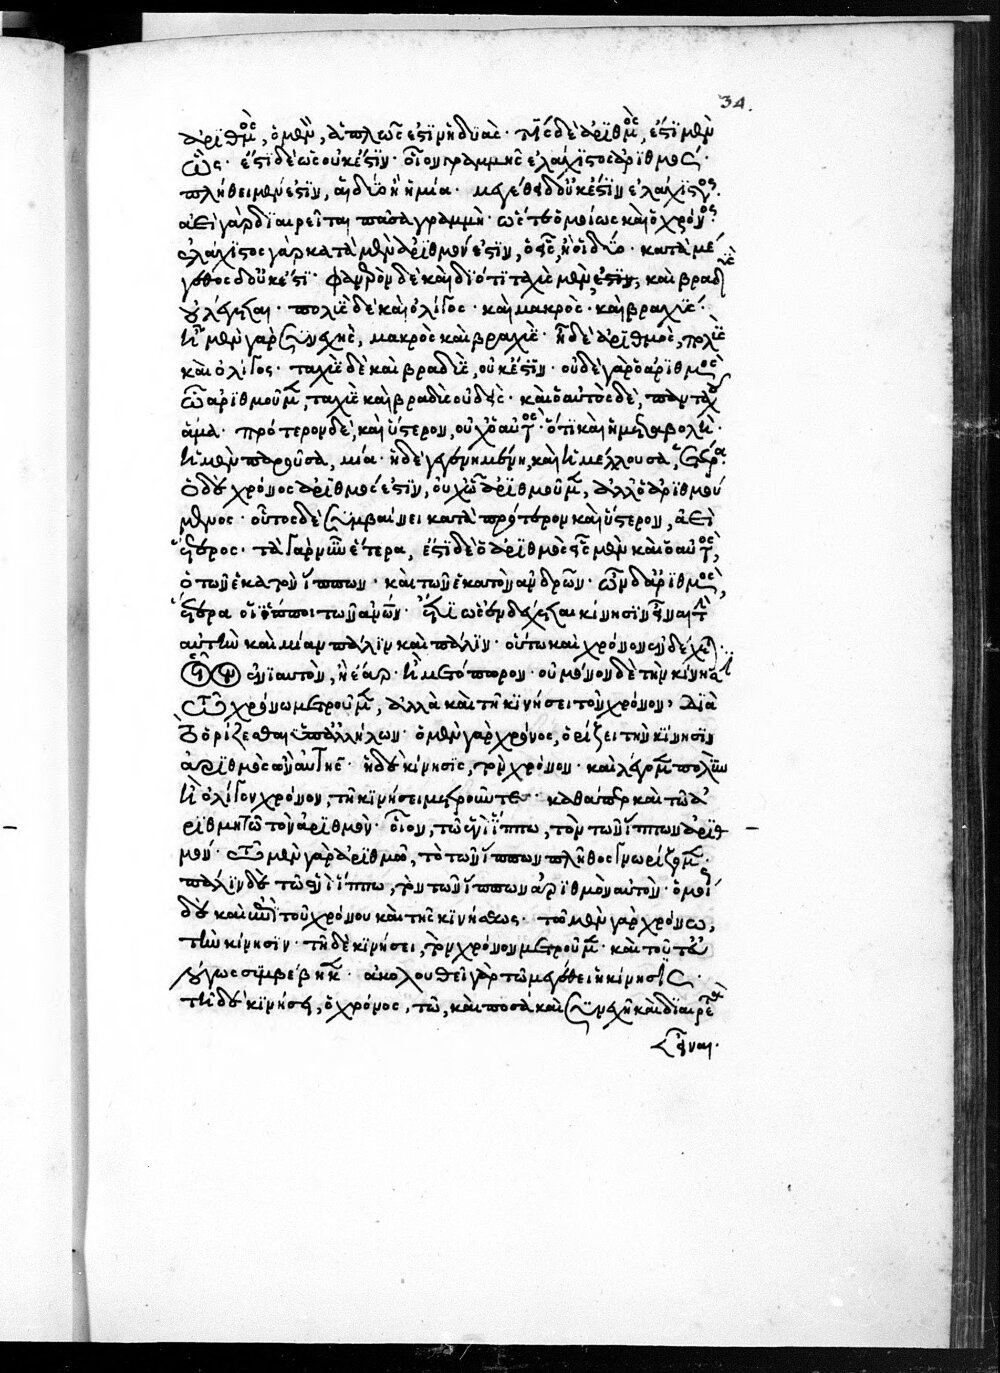 34.
ἀριθμὸς, ὁ μὲν, ἁπλῶς ἐστὶν ἡ δυάς. τὶς δὲ ἀριθμὸς, ἔστι μὲν
ὡς. ἔστι δὲ ὡς οὐκ ἔστιν. οἷον γραμμῆς ἐλάχιστος ἀριθμὸς.
πλήθει μέν ἐστιν, αἱ δύο ἢ ἡ μία. μεγέθει δ' οὐκ ἔστιν ἐλάχιστος.
ἀεὶ γὰρ διαιρεῖται πᾶσα γραμμή. ὥστε ὁμοίως καὶ ὁ χρόνος.
ἐλάχιστος γὰρ κατὰ μὲν ἀριθμόν ἐστιν, ὁ εἷς, ἢ οἱ δύο. κατὰ μέ
γεθος δ' οὐκ ἔστι. φανερὸν δὲ καὶ διότι ταχὺς μὲν ἐστιν, καὶ βραδὺς
οὐ λέγεται. πολὺς δὲ καὶ ὀλίγος. καὶ μακρὸς. καὶ βραχύς.
ᾗ μὲν γὰρ συνεχὴς, μακρὸς καὶ βραχὺς. ᾗ δὲ ἀριθμὸς, πολὺς
καὶ ὀλίγος. ταχὺς δὲ καὶ βραδὺς, οὐκ ἔστιν. οὐδὲ γὰρ ὁ ἀριθμὸς
ᾧ ἀριθμοῦμεν, ταχὺς καὶ βραδὺς οὐδείς. καὶ ὁ αὐτὸς δὲ, πανταχοῦ
ἅμα. πρότερον δὲ, καὶ ὕστερον, οὐχ ὁ αὐτὸς. ὅτι καὶ ἡ μεταβολὴ.
ἡ μὲν παροῦσα, μία. ἡ δὲ γεγενημένη, καὶ ἡ μέλλουσα, ἑτέρα.
ὁ δὲ χρόνος ἀριθμός ἐστιν, οὐχ ᾧ ἀριθμοῦμεν, ἀλλ' ὁ ἀριθμού
μενος. οὗτος δὲ συμβαίνει κατὰ πρότερον καὶ ὕστερον, ἀεὶ
ἕτερος. τὰ γὰρ νῦν ἕτερα, ἔστι δὲ ὁ ἀριθμὸς εἷς μὲν καὶ ὁ αὐτὸς,
ὁ τῶν ἑκατὸν ἵππων. καὶ τῶν ἑκατὸν ἀνδρῶν. ὧν δ' ἀριθμὸς,
ἕτερα οἱ ἵπποι τῶν ἀνῶν. ἔτι ὡς ἐνδέχεται κίνησιν εἶναι τὴν
αὐτὴν καὶ μίαν πάλιν καὶ πάλιν. οὕτω καὶ χρόνον ἐνδέχεται.
ἐνιαυτὸν, ἢ ἔαρ. ἢ μετόπωρον. οὐ μόνον δὲ τὴν κίνησιν
τῷ χρόνω μετροῦμεν, ἀλλὰ καὶ τῇ κινήσει τὸν χρόνον, διὰ
τὸ ὁρίζεσθαι ὑπ' ἀλλήλων. ὁ μὲν γὰρ χρόνος, ὁρίζει τὴν κίνησιν
ἀριθμὸς ὢν αὐτῆς. ἡ δὲ κίνησις, τὸν χρόνον. καὶ λέγομεν πολὺν
ἢ ὀλίγον χρόνον, τῇ κινήσει μετροῦντες. καθάπερ καὶ τῶ ἀ
ριθμητῶ τὸν ἀριθμὸν. οἷον, τῶ ἑνὶ ἵππω, τὸν τῶν ἵππων ἀριθ
μόν. τῷ μὲν γὰρ ἀριθμῶ, τὸ τῶν ἵππων πλῆθος γνωρίζομεν.
πάλιν δὲ τῶ ἑνὶ ἵππω, τὸν τῶν ἵππων ἀριθμὸν αὐτὸν. ὁμοί
δὲ καὶ ἐπὶ τοῦ χρόνου καὶ τῆς κινήσεως. τῶ μὲν γὰρ χρόνω,
τὴν κίνησιν. τῇ δὲ κινήσει, τὸν χρόνον μετροῦμεν. καὶ τοῦτ' εὐ
λόγως συμβέβηκεν. ἀκολουθεῖ γὰρ τῶ μεγέθει ἡ κίνησις.
τῇ δὲ κινήσει, ὁ χρόνος, τῶ, καὶ ποσὰ καὶ συνεχῆ καὶ διαιρετὰ
εἶναι.